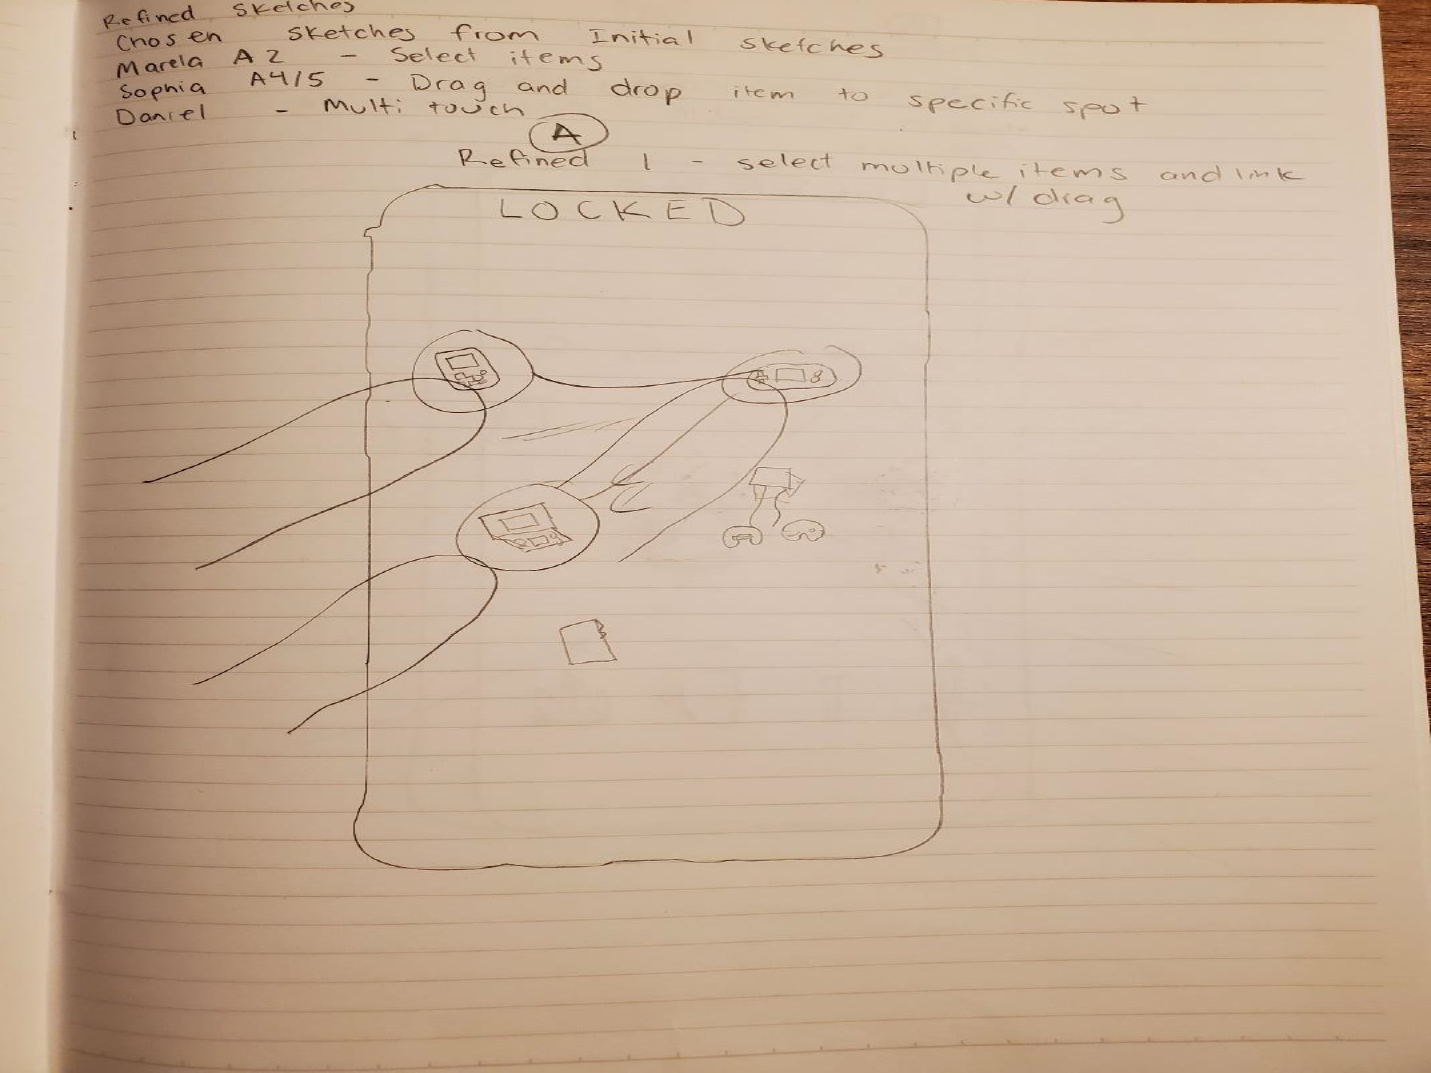 Refined Sketches
Chosen sketches from Initial sketches
Marela A2 - Select items
Sophia A4/5 - Drag and drop item to specific spot
Daniel - Multi touch
A
Refined 1 - select multiple items and link
w/ drag
LOCKED